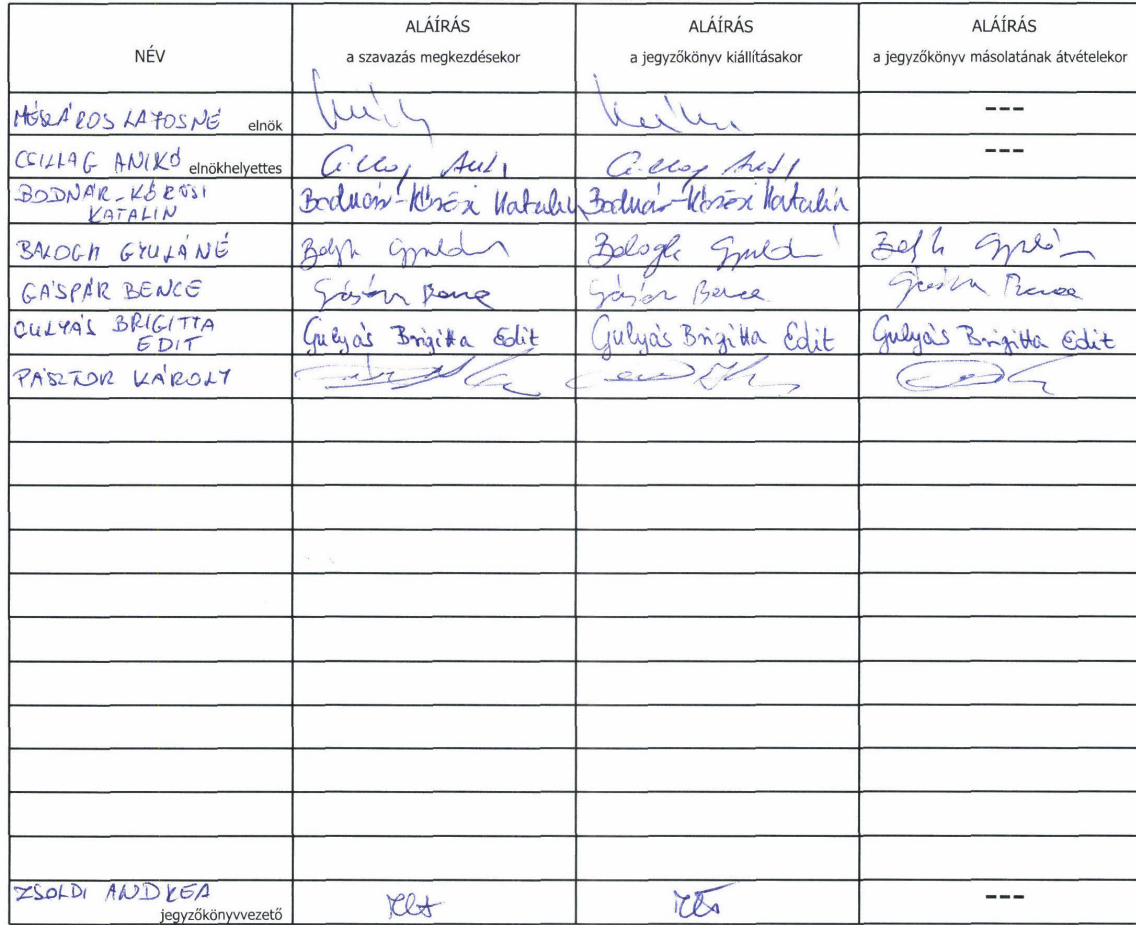 NÉV
ALÁÍRÁS
a szavazás megkezdésekor
ALÁÍRÁS
a jegyzőkönyv kiállításakor
ALÁÍRÁS
a jegyzőkönyv másolatának átvételekor
MÉSZÁROS LAJOSNÉ elnök
---
CSILLAG ANIKÓ elnökhelyettes
---
BODNÁR-KŐRÖSI
KATALIN
Bodnár-Kőrösi Katalin
Bodnár-Kőrösi Katalin
BALOGH GYULÁNÉ
Balogh
GÁSPÁR BENCE
Gáspár Bence
Gáspár Bence
Gáspár Bence
GULYÁS BRIGITTA
EDIT
Gulyás Brigitta Edit
Gulyás Brigitta Edit
Gulyás Brigitta Edit
PÁSZTOR KÁROLY
ZSOLDI ANDREA
jegyzőkönyvvezető
---